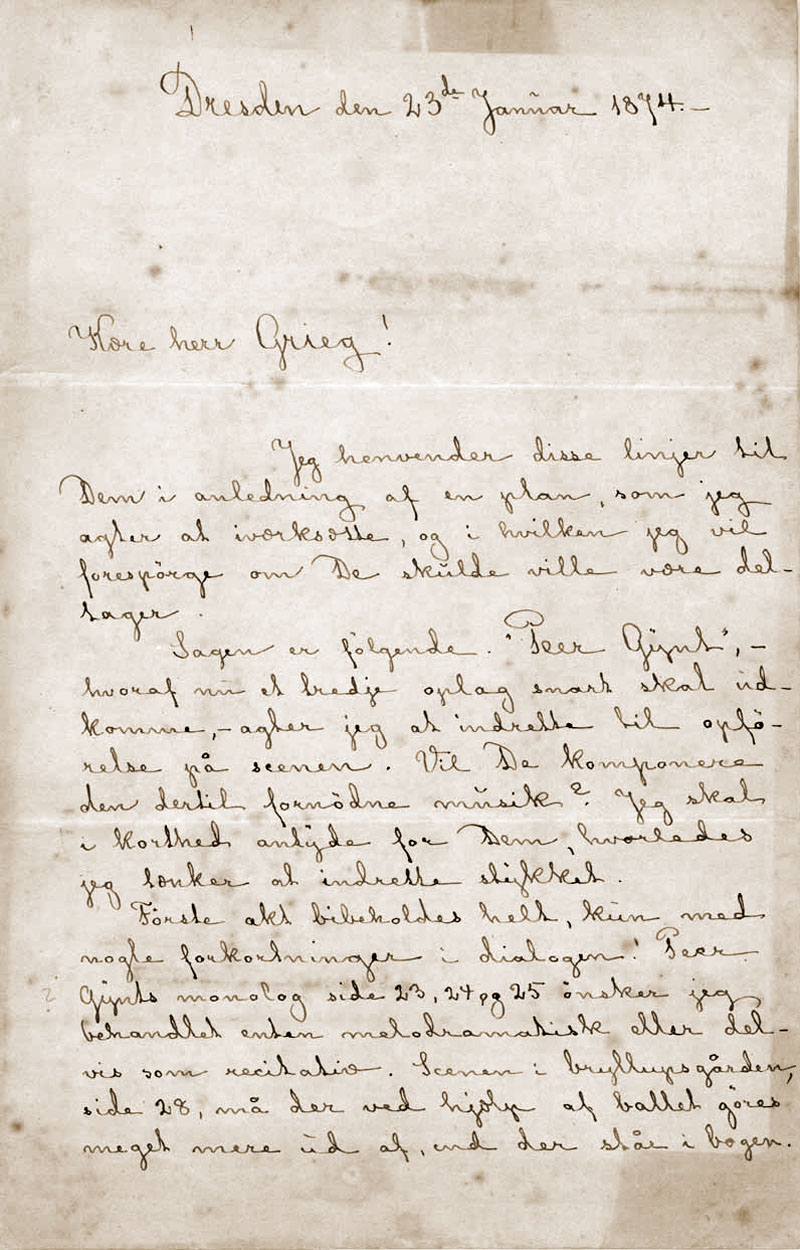 Dresden den 23de Januar 1874.—
Kære herr Grieg!
Jeg henvender disse linjer til
Dem i anledning af en plan, som jeg
agter at iværksætte, og i hvilken jeg vil
forespörge om De skulde ville være del-
tager.
Sagen er følgende. "Peer Gynt", —
hvoraf nu et tredje oplag snart skal ud-
komme, — agter jeg at indrette til opfö-
relse på scenen. Vil De komponere
den dertil fornödne musik? Jeg skal
i korthed antyde for Dem, hvorledes
jeg tænker at indrette stykket.
Förste akt bibeholdes helt, kun med
nogle forkortninger i dialogen. Peer
Gynts monolog side 23, 24 og 25 önsker jeg
behandlet enten melodramatisk eller del-
vis som recitativ. Scenen i bryllupsgården,
side 28, må der ved hjælp af ballet göres
meget mere ud af, end der står i bogen.